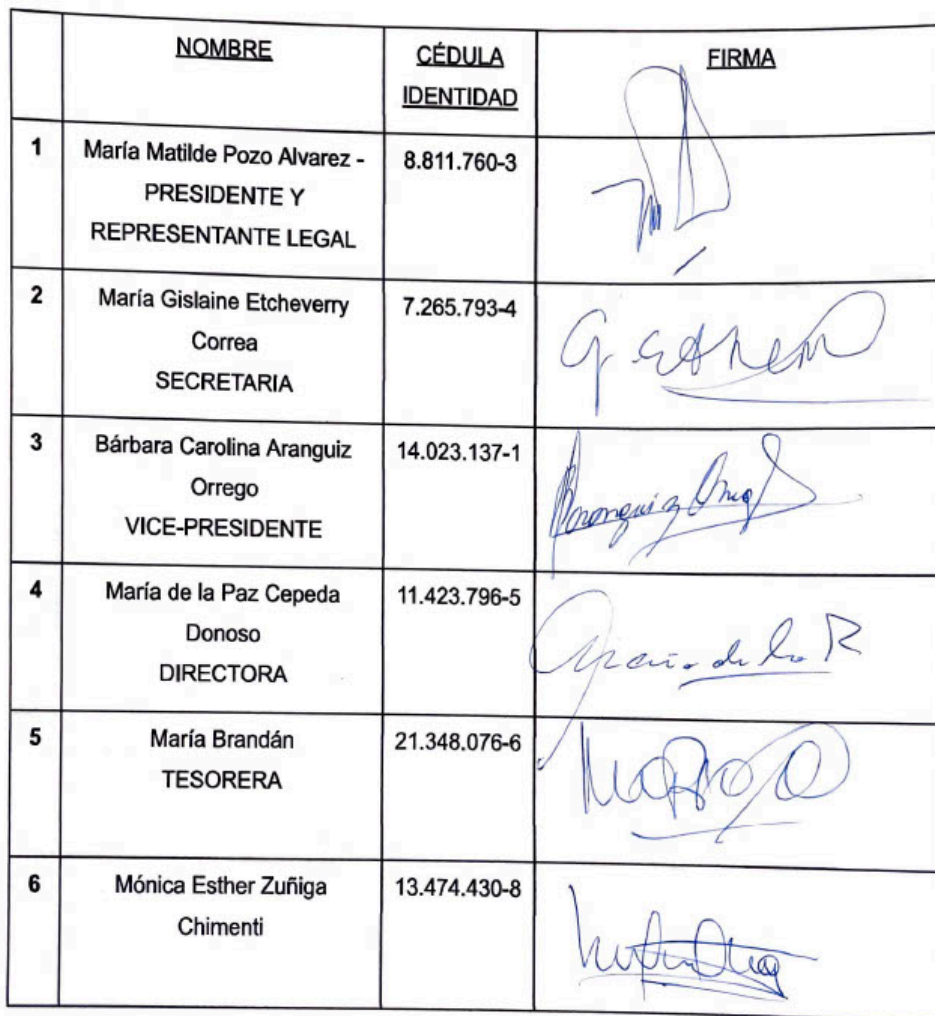 NOMBRE
CÉDULA
IDENTIDAD
FIRMA
1
María Matilde Pozo Alvarez -
PRESIDENTE Y
REPRESENTANTE LEGAL
8.811.760-3
2
María Gislaine Etcheverry
Correa
SECRETARIA
7.265.793-4
3
Bárbara Carolina Aranguiz
Orrego
VICE-PRESIDENTE
14.023.137-1
4
María de la Paz Cepeda
Donoso
DIRECTORA
11.423.796-5
5
María Brandán
TESORERA
21.348.076-6
6
Mónica Esther Zuñiga
Chimenti
13.474.430-8